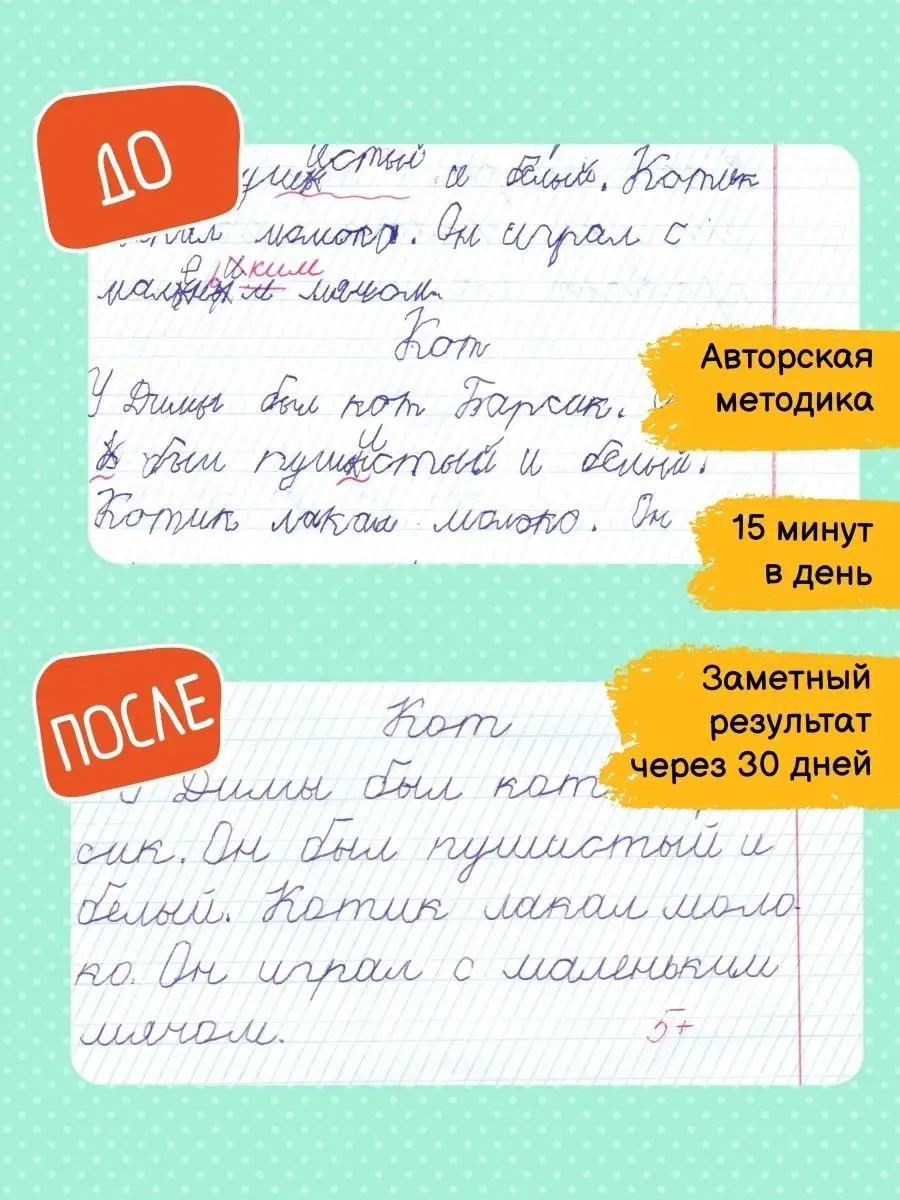 ДО
истый
и белый. Котик
молоко. Он играл с
ким
мячом.
Кот
У Димы был кот Барсик.
был пушистый и белый.
Котик лакал молоко. Он
Авторская
методика
15 минут
в день
Заметный
результат
через 30 дней
ПОСЛЕ
Кот
У Димы был кот
сик. Он был пушистый и
белый. Котик лакал моло-
ко. Он играл с маленьким
мячом.
5+